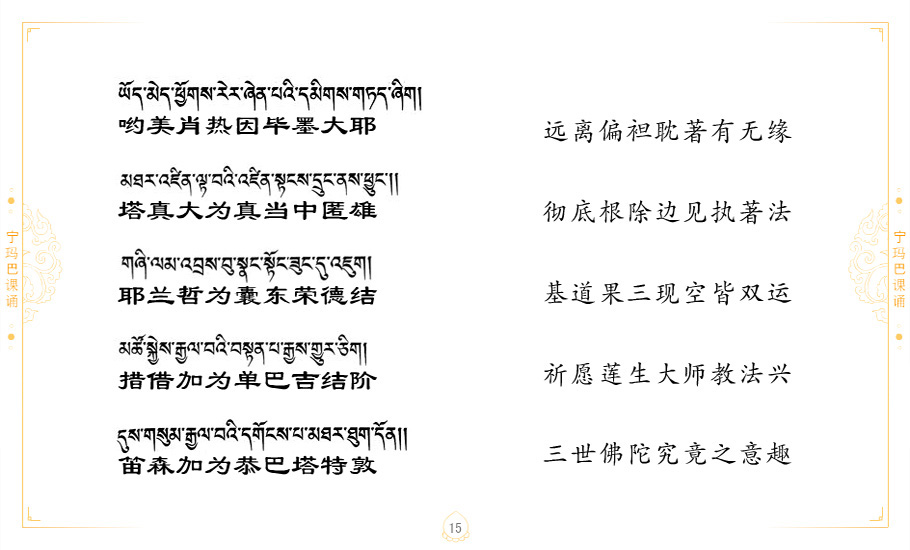 ཡོད་མེད་ཕྱོགས་རེར་ཞེན་པའི་དམིགས་གཏད་ཞིག།
哟美肖热因毕墨大耶
远离偏袒耽著有无缘
མཐར་འཛིན་ལྟ་བའི་འཛིན་སྟངས་དྲུང་ནས་ཕྱུང་།།
塔真大为真当中匿雄
彻底根除边见执著法
གཞི་ལམ་འབྲས་བུ་སྣང་སྟོང་ཟུང་དུ་འཇུག།
耶兰哲为囊东荣德结
基道果三现空皆双运
མཚོ་སྐྱེས་རྒྱལ་བའི་བསྟན་པ་རྒྱས་གྱུར་ཅིག།
措借加为单巴吉结阶
祈愿莲生大师教法兴
དུས་གསུམ་རྒྱལ་བའི་དགོངས་པ་མཐར་ཐུག་དོན།།
笛森加为恭巴塔特敦
三世佛陀究竟之意趣
宁玛巴课诵
宁玛巴课诵
15